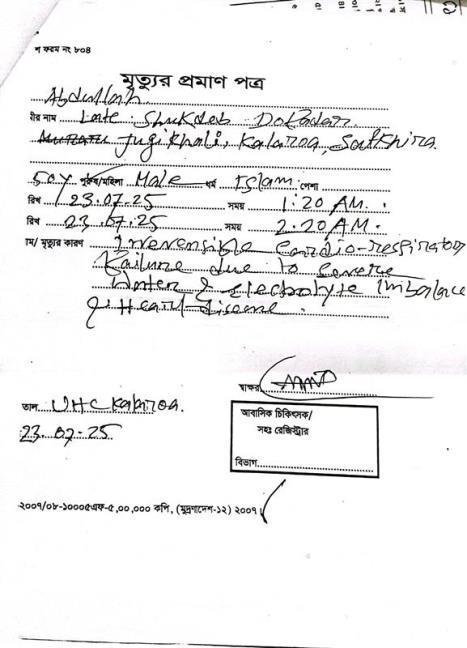 শ ফরম নং ৮০৪
মৃত্যুর প্রমাণ পত্র
Abdullah
ীর নাম Late Shukdeb Dafadar
Jugikhali, Kalaroa, Satkhira.
50y পুরুষ/মহিলা Male ধর্ম Islam পেশা
রিখ 23.07.25 সময় 1:20 AM.
রিখ 23.07.25 সময় 2:20 AM.
াম/ মৃত্যুর কারণ Irreversible Cardio-respiratory
Failure due to Severe
Water & Electrolyte Imbalance
& Heart Disease.
স্বাক্ষর
তাল UHC Kalaroa.
23.07.25
আবাসিক চিকিৎসক/
সহঃ রেজিস্ট্রার
বিভাগ
২০০৭/০৮-১০০০৫এফ-৫,০০,০০০ কপি, (মুদ্রণাদেশ-১২) ২০০৭।